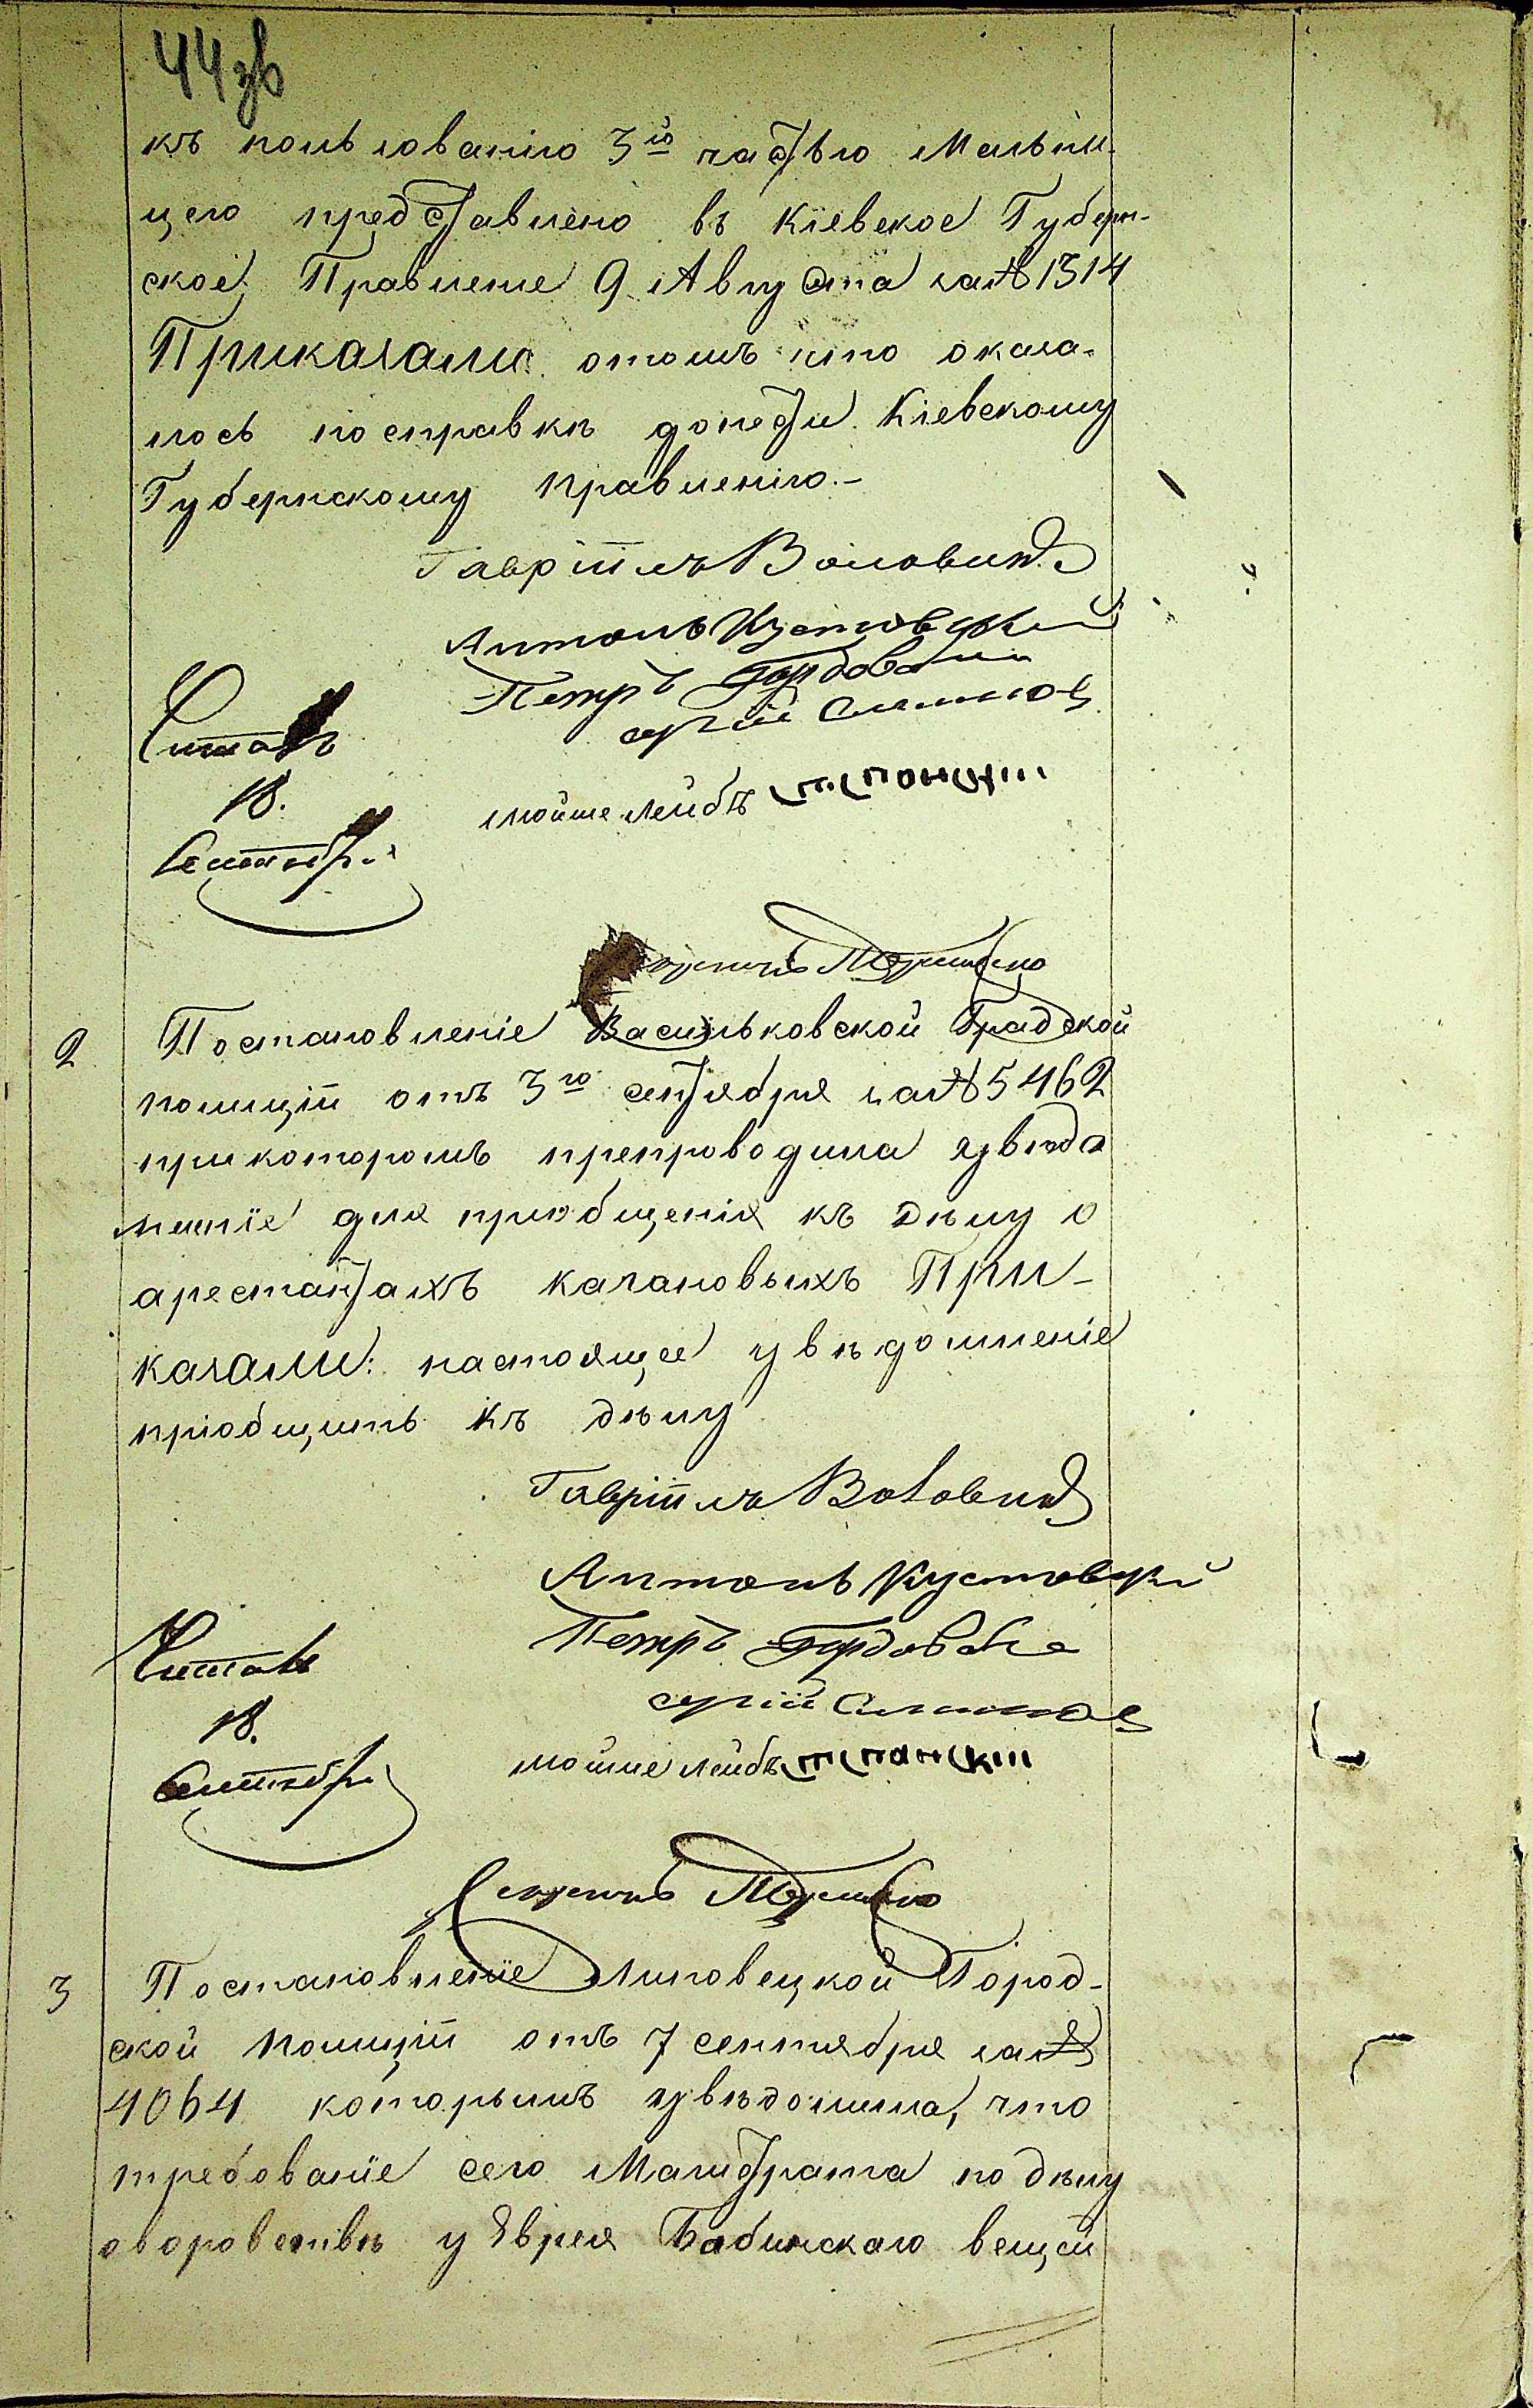 44 зв
къ пользованію 3й частью Мальин-
цего представлено въ Кіевское Губерн-
ское Правление 9 Августа за № 1314
Приказали: отомъ что оказа-
лось посправкѣ донести Кіевскому
Губернскому правленію.-
Гавріилъ Воловик
Антонъ Кустовскій
Петръ
сергій
Читалъ
18.
Сентября
мойше лейбъ
2 Постановленіе Васильковской Градской
полиціи отъ 3го сентября за № 5462
прикоторомъ препроводила увѣдо
мленіе для пріобщенія къ дѣлу о
арестантахъ Качановыхъ При-
казали: настоящее увѣдомленіе
пріобщить къ дѣлу
Гавріилъ Воловик
Антонъ Кустовскій
Петръ
сергій
Читалъ
18.
Сентября
мойше лейбъ
3 Постановленіе Липовецкой Город-
ской полиціи отъ 7 сентября за №
4064 которымъ увѣдомила, что
требованіе сего Магистрата по дѣлу
оворовствѣ у Еврея Бабинскаго вещей